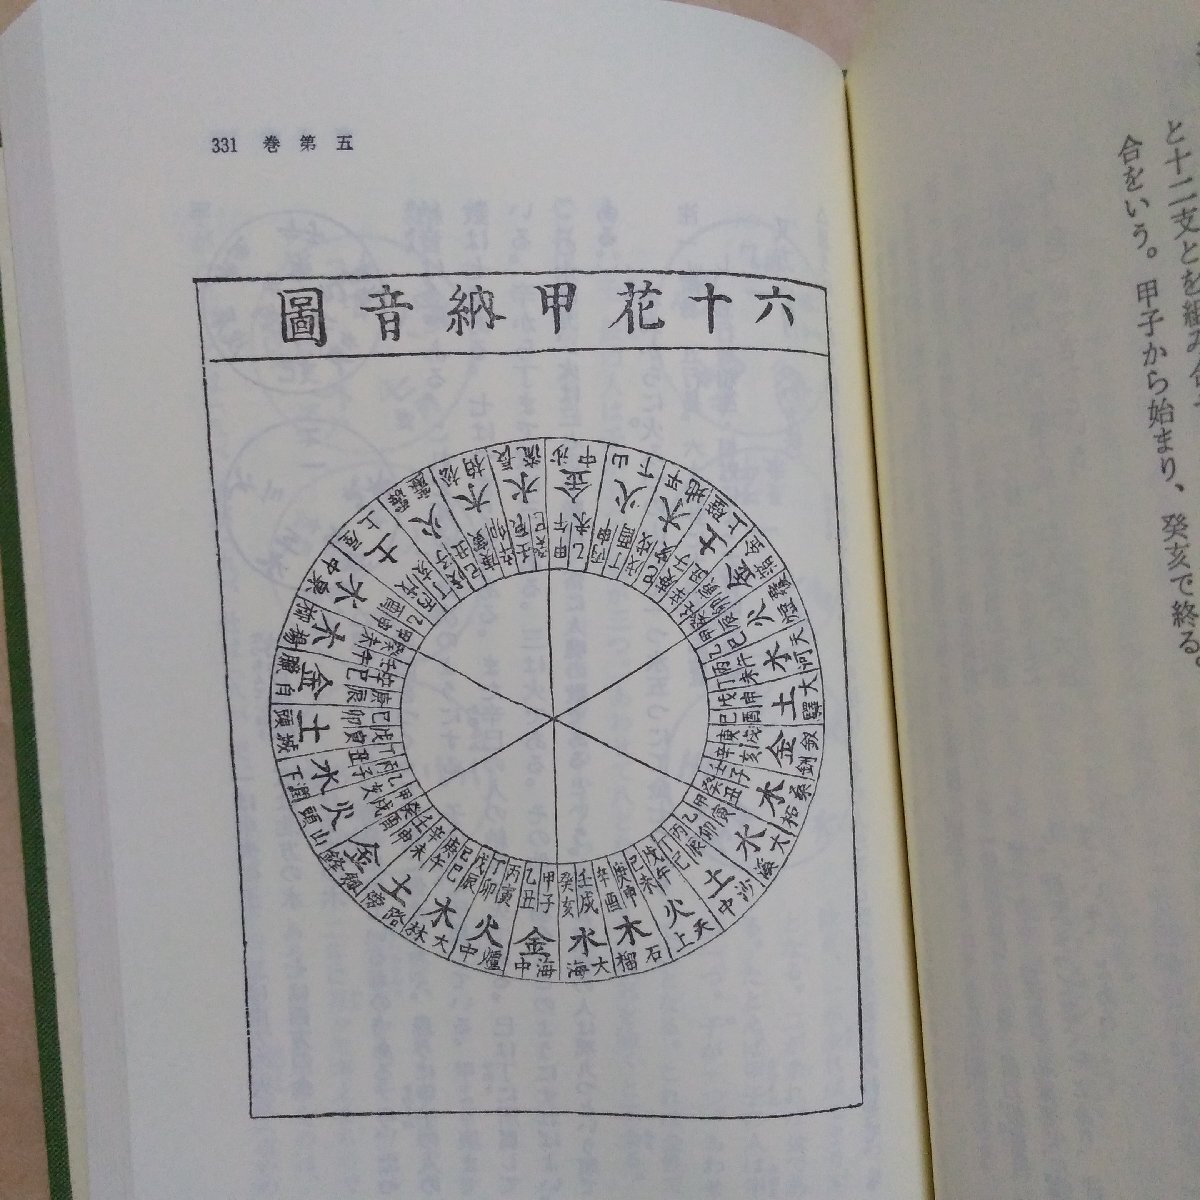 331 巻 第 五
六十花甲納音圖
甲子 乙丑 金 海中
丙寅 丁卯 火 爐中
戊辰 己巳 木 大林
庚午 辛未 土 路旁
壬申 癸酉 金
甲戌 乙亥 火 山頭
丙子 丁丑 水 澗下
戊寅 己卯 土 城頭
庚辰 辛巳 金 白臘
壬午 癸未 木 楊柳
甲申 乙酉 水 泉中
丙戌 丁亥 土 屋上
戊子 己丑 火 霹靂
庚寅 辛卯 木 松柏
壬辰 癸巳 水 長流
甲午 乙未 金 沙中
丙申 丁酉 火 山下
戊戌 己亥 木 平地
庚子 辛丑 土 壁上
壬寅 癸卯 金 金箔
甲辰 乙巳 火
丙午 丁未 水 天河
戊申 己酉 土 大驛
庚戌 辛亥 金 釵釧
壬子 癸丑 木 桑柘
甲寅 乙卯 水 大溪
丙辰 丁巳 土 沙中
戊午 己未 火 天上
庚申 辛酉 木 石榴
壬戌 癸亥 水 大海
と十二支とを組み合せ
合をいう。甲子から始まり、癸亥で終る。